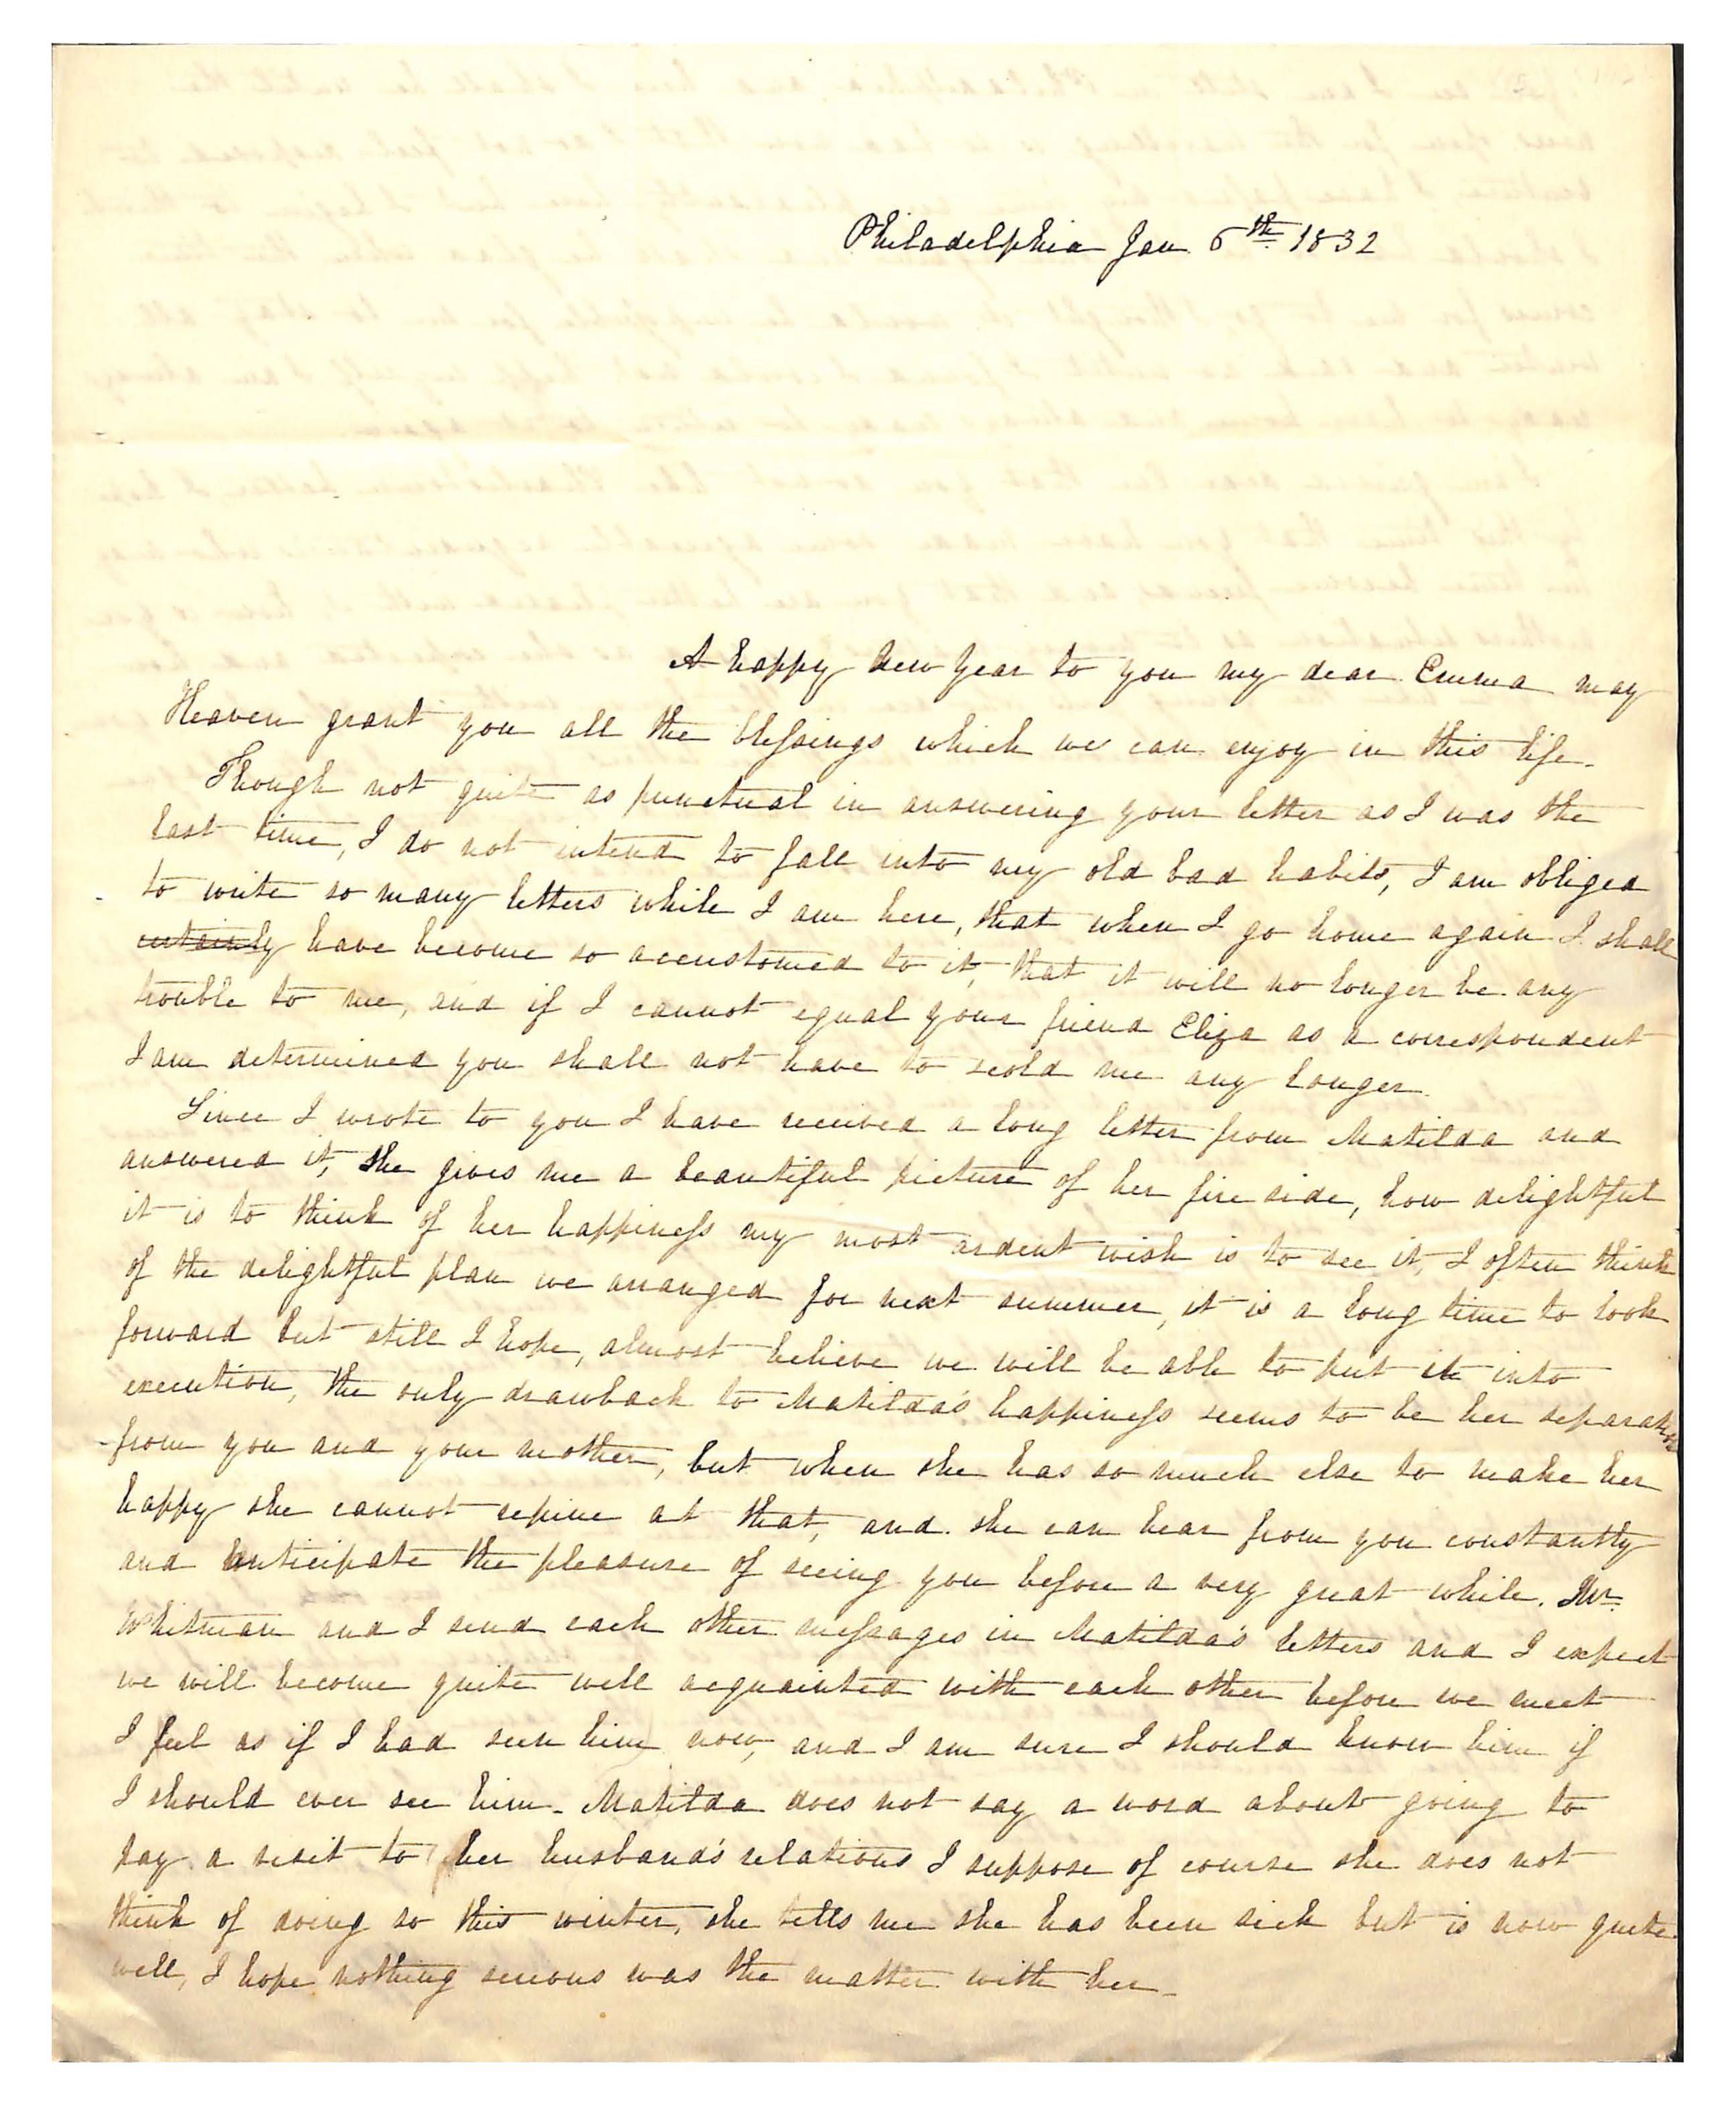 Philadelphia Jan 6th 1832
A happy New Year to you my dear Emma may
Heaven grant you all the blessings which we can enjoy in this life.
Though not quite as punctual in answering your letter as I was the
last time, I do not intend to fall into my old bad habits, I am obliged
to write so many letters while I am here, that when I go home again I shall
certainly have become so accustomed to it, that it will no longer be any
trouble to me, and if I cannot equal your friend Eliza as a correspondent
I am determined you shall not have to scold me any longer.
Since I wrote to you I have received a long letter from Matilda and
answered it, she gives me a beautiful picture of her fire side, how delightful
it is to think of her happiness my most ardent wish is to see it, I often think
of the delightful plan we arranged for next summer, it is a long time to look
forward but still I hope, almost believe we will be able to put it into
execution, the only drawback to Matilda's happiness seems to be her separation
from you and your mother, but when she has so much else to make her
happy she cannot repine at that, and she can hear from you constantly
and anticipate the pleasure of seeing you before a very great while. Mr.
Whitman and I send each other messages in Matilda's letters and I expect
we will become quite well acquainted with each other before we meet
I feel as if I had seen him now, and I am sure I should know him if
I should ever see him. Matilda does not say a word about going to
pay a visit to her husband's relations I suppose of course she does not
think of doing so this winter, she tells me she has been sick but is now quite
well, I hope nothing serious was the matter with her.